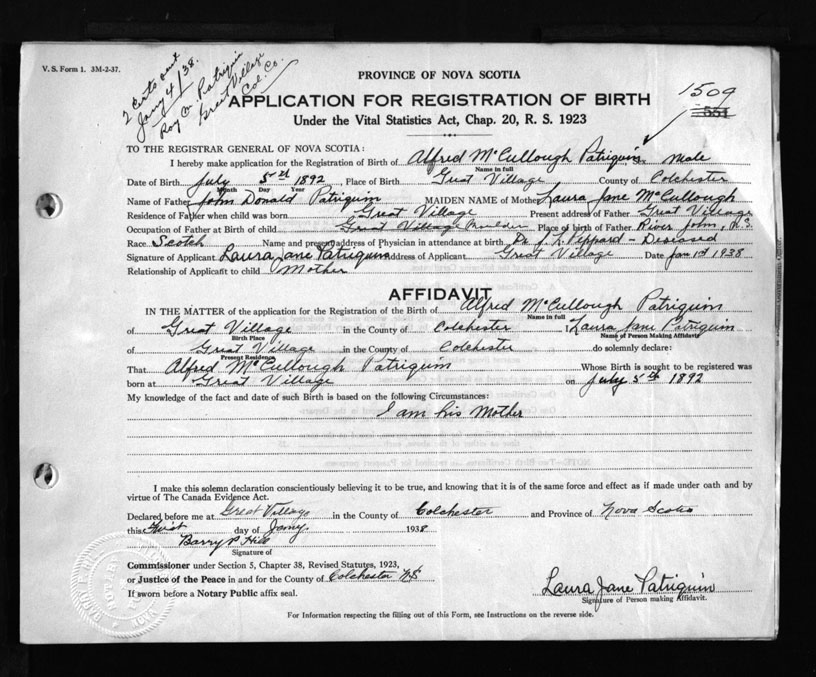 V. S. Form 1. 3M-2-37.
2 Certs sent
Jany 4/38.
Roy C. Patriquin
Great Village
Col. Co.
PROVINCE OF NOVA SCOTIA
1509
551
APPLICATION FOR REGISTRATION OF BIRTH
Under the Vital Statistics Act, Chap. 20, R. S. 1923
TO THE REGISTRAR GENERAL OF NOVA SCOTIA:
I hereby make application for the Registration of Birth of Alfred McCullough Patriquin Male
Name in full
Date of Birth July 5th 1892, Place of Birth Great Village County of Colchester
Month Day Year
Name of Father John Donald Patriquin MAIDEN NAME of Mother Laura Jane McCullough
Residence of Father when child was born Great Village Present address of Father Great Village
Occupation of Father at Birth of child Great Village Moulder Place of birth of Father River John, N.S.
Race Scotch Name and present address of Physician in attendance at birth Dr. J. L. Peppard - Deseased
Signature of Applicant Laura Jane Patriquin Address of Applicant Great Village Date Jan 1st 1938
Relationship of Applicant to child Mother
AFFIDAVIT
IN THE MATTER of the application for the Registration of the Birth of Alfred McCullough Patriquin
Name in full
of Great Village in the County of Colchester I Laura Jane Patriquin
Birth Place Name of Person Making Affidavit
of Great Village in the County of Colchester do solemnly declare:
Present Residence
That Alfred McCullough Patriquin Whose Birth is sought to be registered was
born at Great Village on July 5th 1892
My knowledge of the fact and date of such Birth is based on the following Circumstances:
I am his Mother
I make this solemn declaration conscientiously believing it to be true, and knowing that it is of the same force and effect as if made under oath and by
virtue of The Canada Evidence Act.
Declared before me at Great Village in the County of Colchester and Province of Nova Scotia
this First day of Jany 1938
Barry P Hill
Signature of
Commissioner under Section 5, Chapter 38, Revised Statutes, 1923,
or Justice of the Peace in and for the County of Colchester NS
If sworn before a Notary Public affix seal.
Laura Jane Patriquin
Signature of Person making Affidavit.
For Information respecting the filling out of this Form, see Instructions on the reverse side.